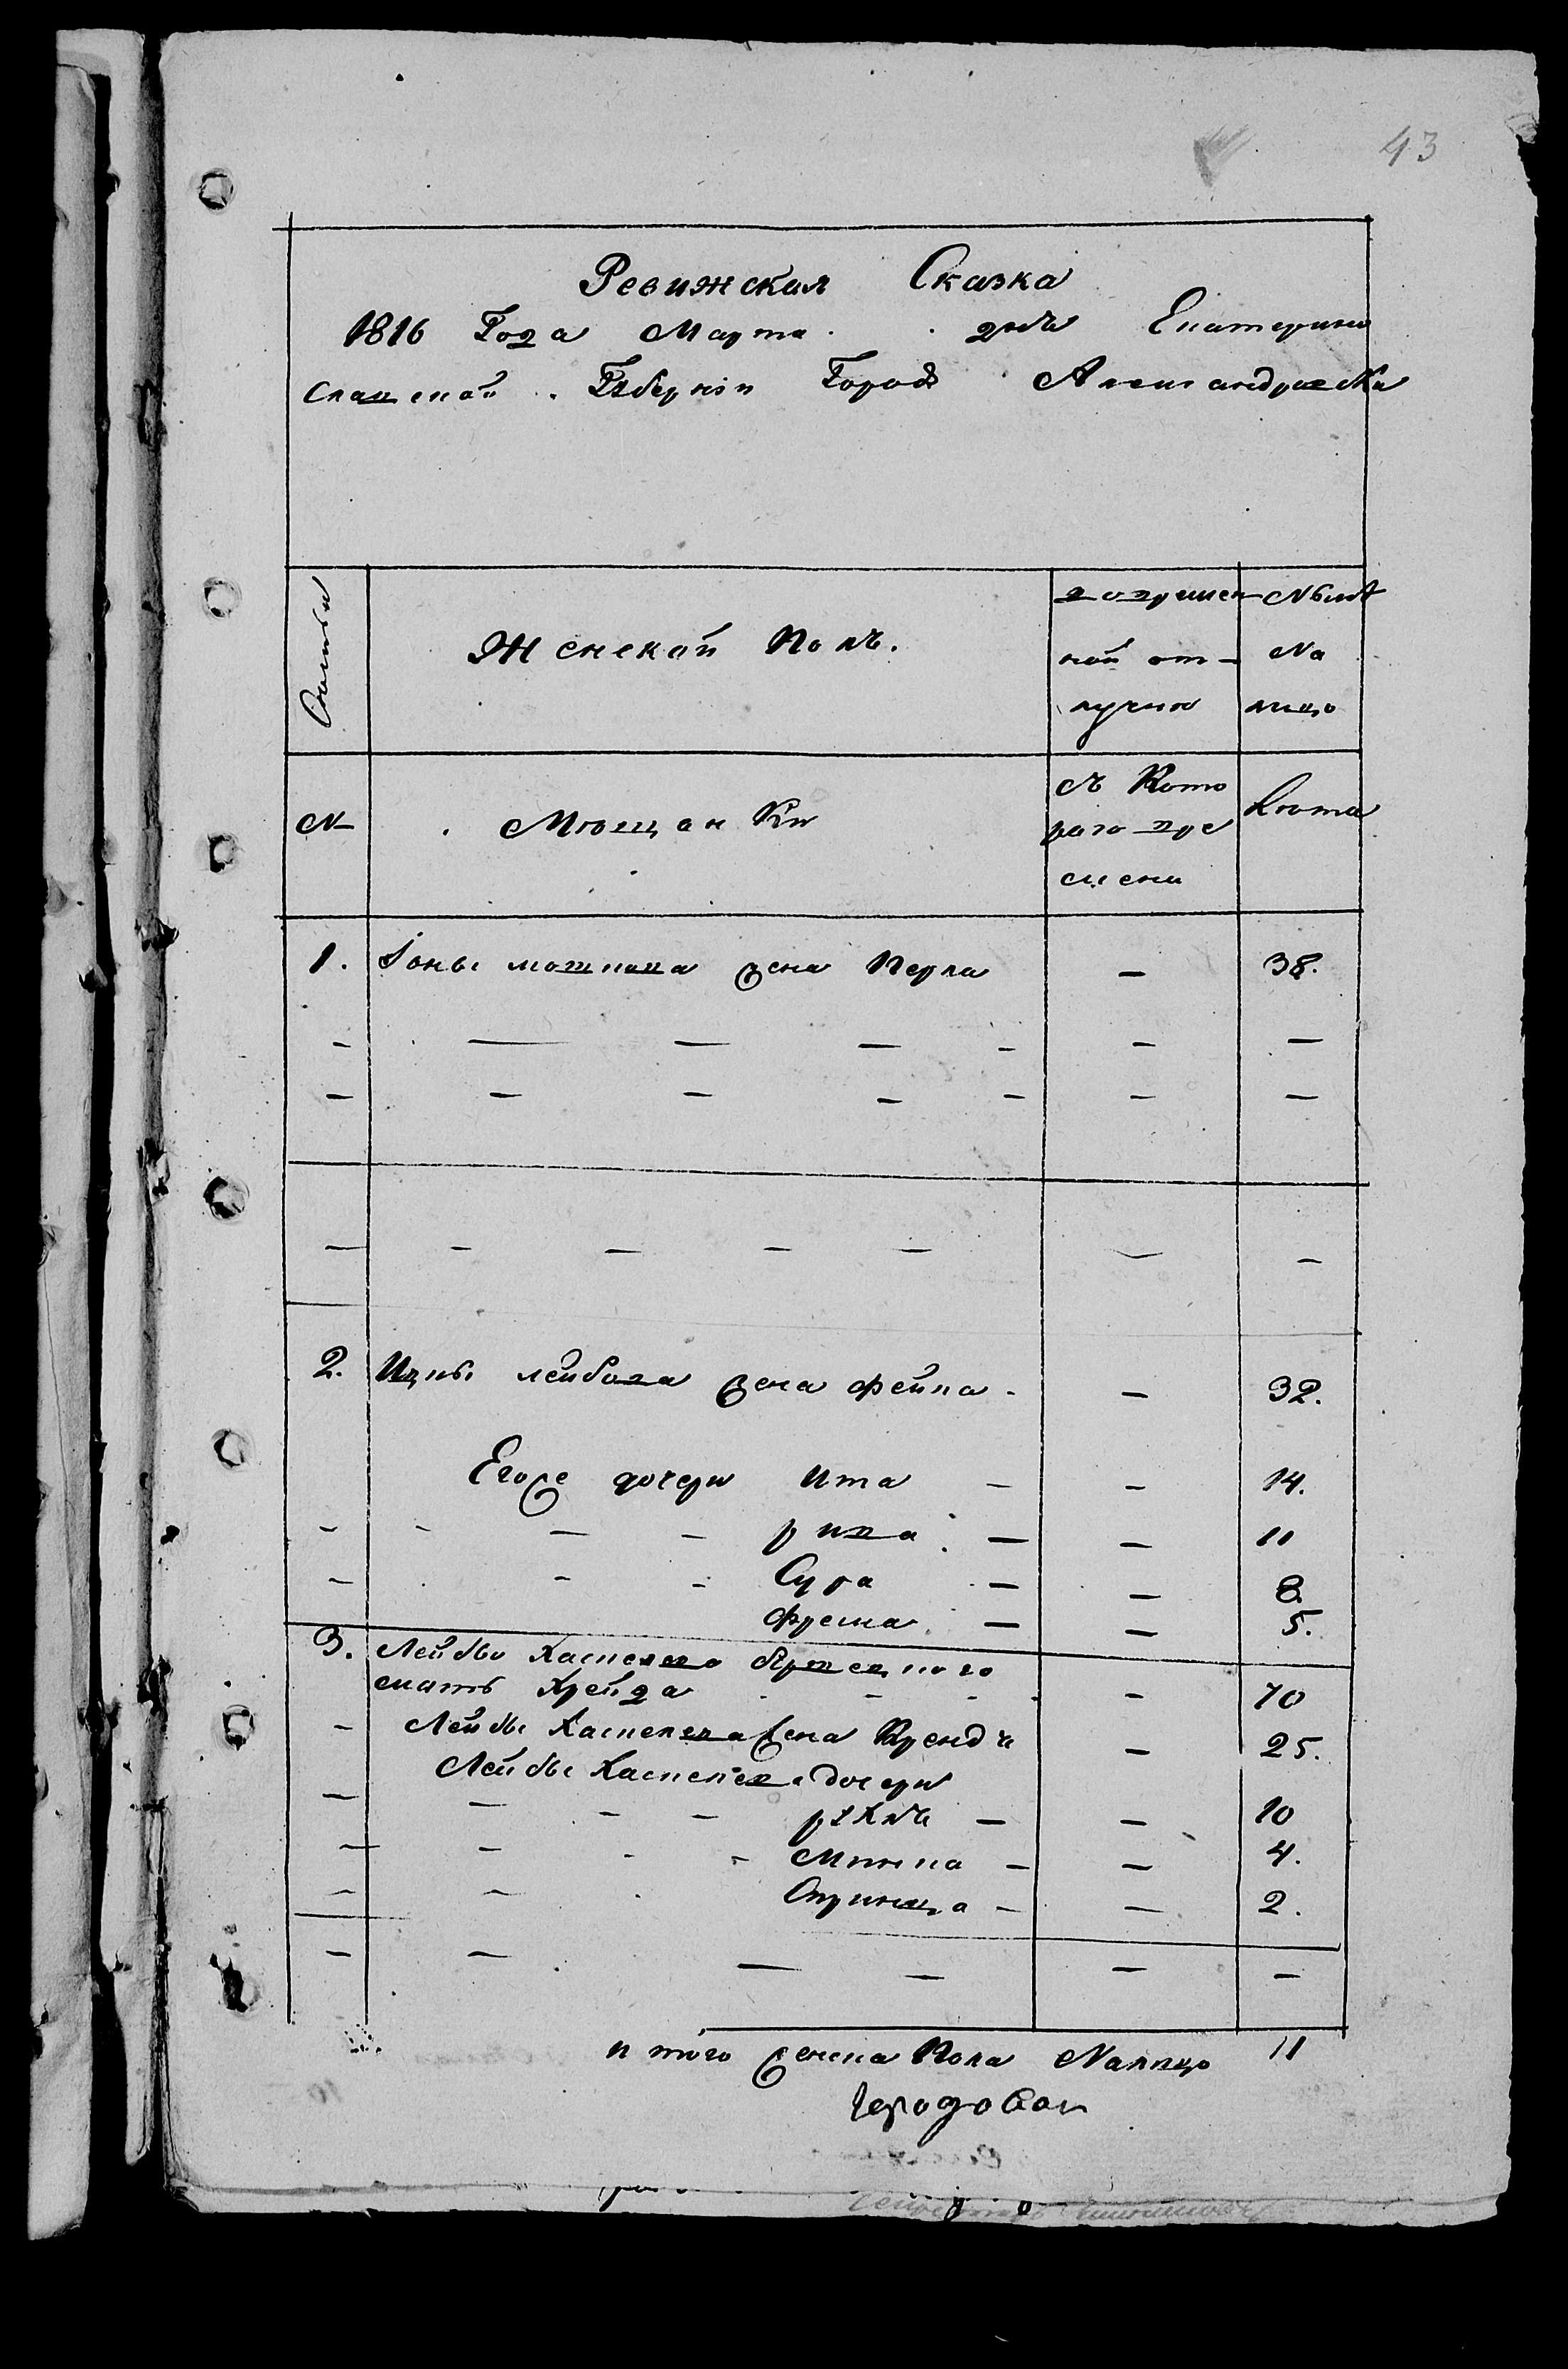 43
Ревижская Сказка
1816 Года Марта дня Екатерино
Славской Губернiи Города Александровска
Семьи
Женской Полъ.
во временной отлучке
Ныне на лицо
№
Мещанки
Съ Которого времени
Лета
1. Iоны мошкова жена Перла — 38.
2. Ицки лейбова жена фейга — 32.
Егоже дочери Ита — — 14.
рива — — 11
Сура — — 8.
фрема — — 5.
3. Лейбы Хаскелева
мать Хрейда — 70
Лейбы Хаскелева жена Крендя — 25.
Лейбы Хаскелева дочери
— — 10
Минка — — 4.
Опринца — — 2.
итого женска Пола Налицо 11